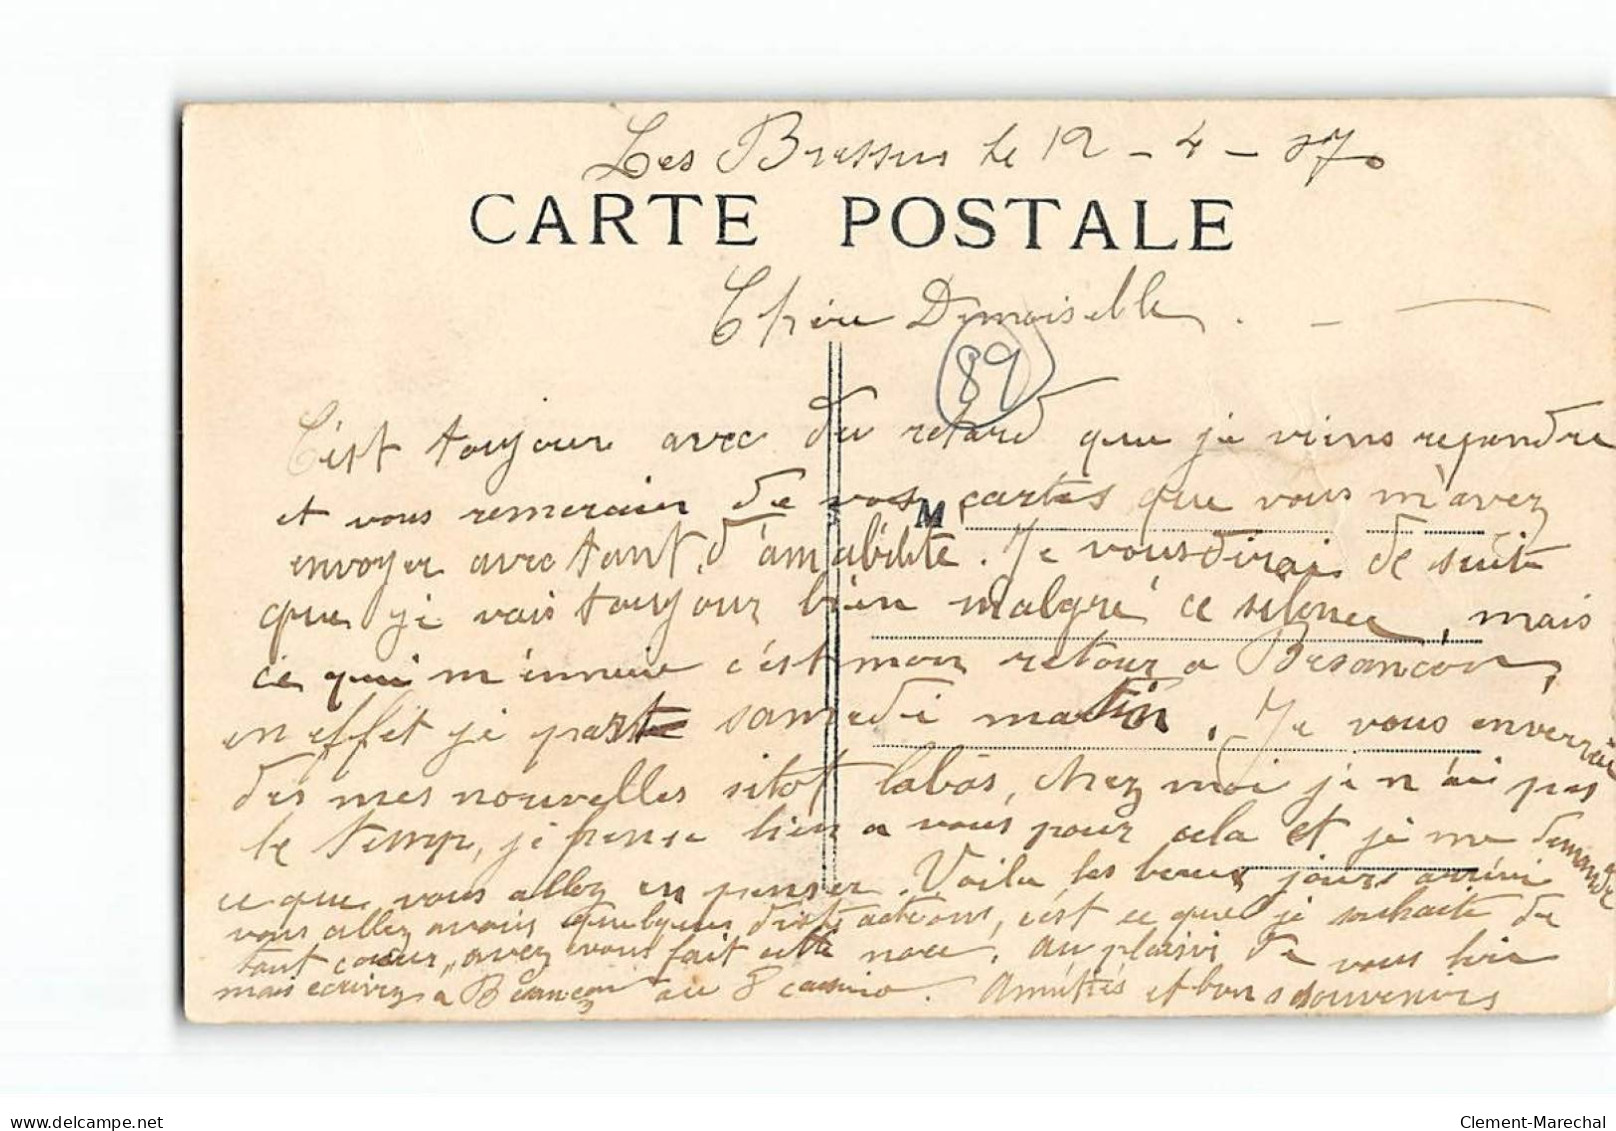 Les Bressus le 12 - 4 - 37.
CARTE POSTALE
Chère Demoiselle
89
C'est toujour avec du retard que je viens repondre
et vous remercier de vos cartes que vous m'avez
M
envoyer avec tant d'amabilité. Je vous dirai de suite
que je vais toujour bien malgré ce silence, mais
ce qui m'ennuie c'est mon retour a Besancon,
en effet je part samedi matin. Je vous enverrai
des mes nouvelles sitot labas, chez moi je n'ai pas
le temp, je pense bien a vous pour cela et je me demande
ce que vous allez en penser. Voila les beaux jours arrivé
vous allez avoir quelques distractions, c'est ce que je souhaite de
tout coeur, avez vous fait cette noce. Au plaisir de vous lire
mais ecrivez a Besancon au 8 Amitiés et bons souvenirs
Clement-Marechal
delcampe.net